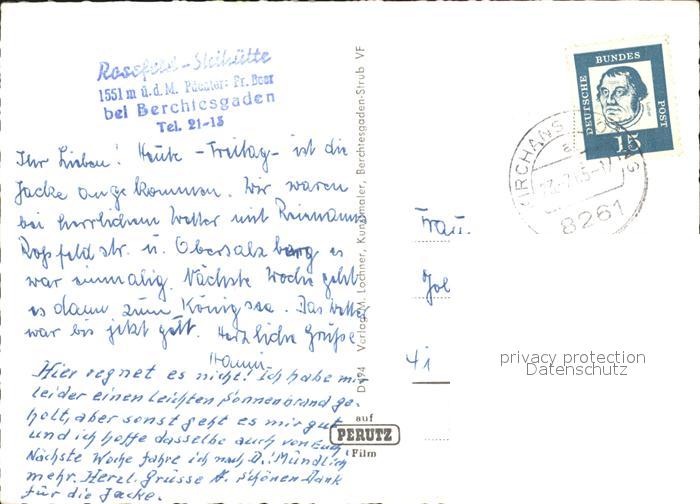 Rossfeld-Skihütte
1551 m ü.d.M. Pächter: Fr. Beer
bei Berchtesgaden
Tel. 21-15
Ihr Lieben! Heute -Freitag- ist die
Jacke angekommen. Wir waren
bei herrlichem Wetter mit
Roßfeldstr. u. Obersalzberg es
war einmalig. Nächste Woche geht
es dann zum Königssee. Das Wetter
war bis jetzt gut. Herzliche Grüße
Hanni
Hier regnet es nicht! Ich habe mir
leider einen leichten Sonnenbrand ge-
holt, aber sonst geht es mir gut
und ich hoffe dasselbe auch von Euch
Nächste Woche fahre ich nach D. Mündlich
mehr. Herzl. Grüsse A. schönen Dank
für die Jacke.
D 194 Verlag M. Lochner, Kunstmaler, Berchtesgaden-Strub VF
auf
PERUTZ
Film
DEUTSCHE BUNDESPOST
15
8261
Frau
4i
privacy protection
Datenschutz